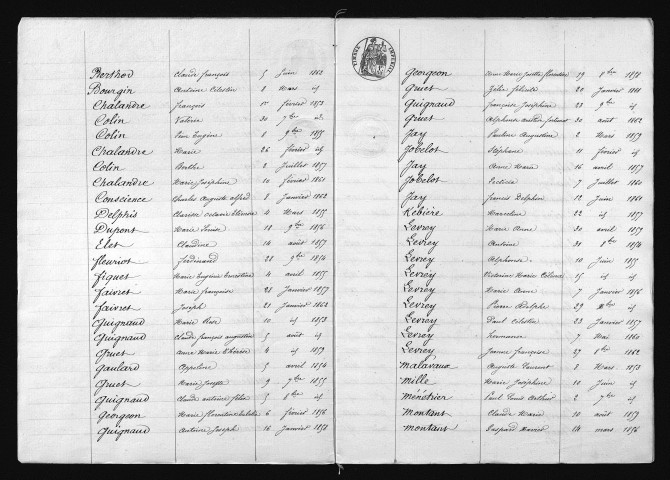 Berthod Claude françois 5 Juin 1862
Bourgin Antoine Célestin 8 Mars id
Chalandre françois 1er février 1853
Colin Valérie 30 7bre id
Colin Eugène 8 9bre 1855
Chalandre Marie 26 février id
Colin Berthe 2 Juillet 1857
Chalandre Marie Joséphine 10 février 1861
Conscience Charles Auguste alfred 8 Janvier 1862
Delphis Clarisse octavie Eléonore 4 Mars 1855
Dupont Marie Louise 18 9bre 1856
Elet Claudine 14 août 1857
fleuriot ferdinand 28 9bre 1854
figuet Marie Eugène Ernestine 4 avril 1855
faivret Marie françoise 28 Janvier 1857
faivret Joseph 20 Janvier 1862
Guignaud Marie Rose 10 id 1853
Guignaud Claude françois augustin 5 août id
Gruet Anne Marie Thérèse 4 id 1859
Gaulard Appoline 5 avril 1854
Gruet Marie Josephe 9 7bre 1855
Guignaud Claude antoine félix 5 août id
Georgeon Marie florentine 6 février 1856
Guignaud Antoine Joseph 16 Janvier 1858
TIMBRE IMPERIAL
Georgeon Anne Marie Josette florentine 29 8bre 1858
Gruet Zélie félicité 20 Janvier 1861
Guignaud françoise Joséphine 23 9bre id
Gruet Alphonse 30 août 1862
Jay Pauline Augustine 2 Mars 1859
Jobelot Stéphane 11 février id
Jay Anne Marie 16 avril 1857
Jobelot 7 Juillet 1860
Jay francis Delphin 12 Juin 1861
Rebière Marceline 22 id 1857
Levrey Marie Anne 30 avril 1859
Levrey Antoine 31 8bre 1854
Levrey Alphonse 10 Juin 1855
Levrey Victorine Marie 15 id id
Levrey Marie Anne 7 Janvier 1856
Levrey Pierre Adolphe 29 Xbre id
Levrey Paul Célestin 23 Janvier 1857
Levrey hermance 7 Mai 1860
Levrey Jeanne françoise 27 8bre 1862
Malavaux Auguste Laurent 8 Mars 1853
Mille Marie Joséphine 10 Juin id
Ménétrier Paul Louis Arthur 2 7bre id
Montant Claude Marie 10 août 1859
Montant Gaspard Xavier 14 mars 1856